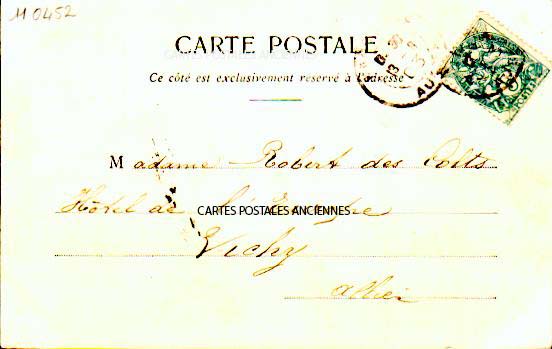 M 0452
CARTE POSTALE
CARTES POSTALES ANCIENNES
Ce côté est exclusivement réservé à l'adresse
Madame Robert des
Hôtel de
CARTES POSTALES ANCIENNES
Vichy
Allier